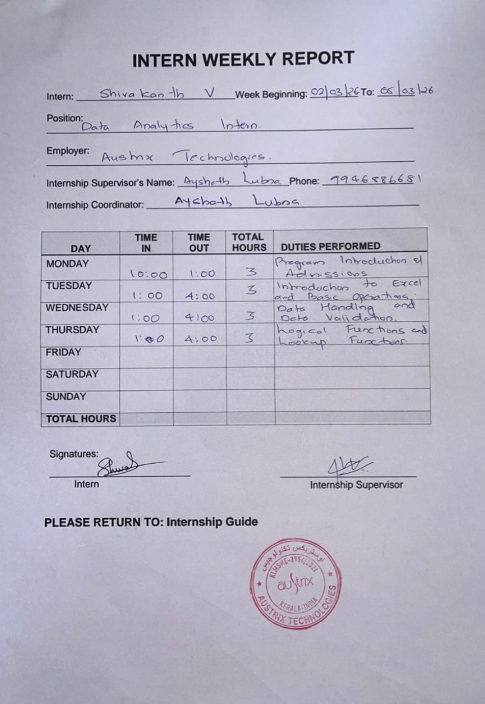 INTERN WEEKLY REPORT
Intern: Shiva Kanth V Week Beginning: 02/03/26 To: 05/03/26.
Position: Data Analytics Intern.
Employer: Austrix Technologies.
Internship Supervisor's Name: Ayshath Lubna Phone: 9946886681
Internship Coordinator: Ayshath Lubna
DAY TIME IN TIME OUT TOTAL HOURS DUTIES PERFORMED
MONDAY 10:00 1:00 3 Program Introduction & Admissions
TUESDAY 1:00 4:00 3 Introduction to Excel and Basic Operations
WEDNESDAY 1:00 4:00 3 Data Handling and Data Validation.
THURSDAY 1:00 4:00 3 Logical Functions and Lookup Functions.
FRIDAY
SATURDAY
SUNDAY
TOTAL HOURS
Signatures:
Intern Internship Supervisor
PLEASE RETURN TO: Internship Guide
austrix
KERALA-INDIA
AUSTRIX TECHNOLOGIES